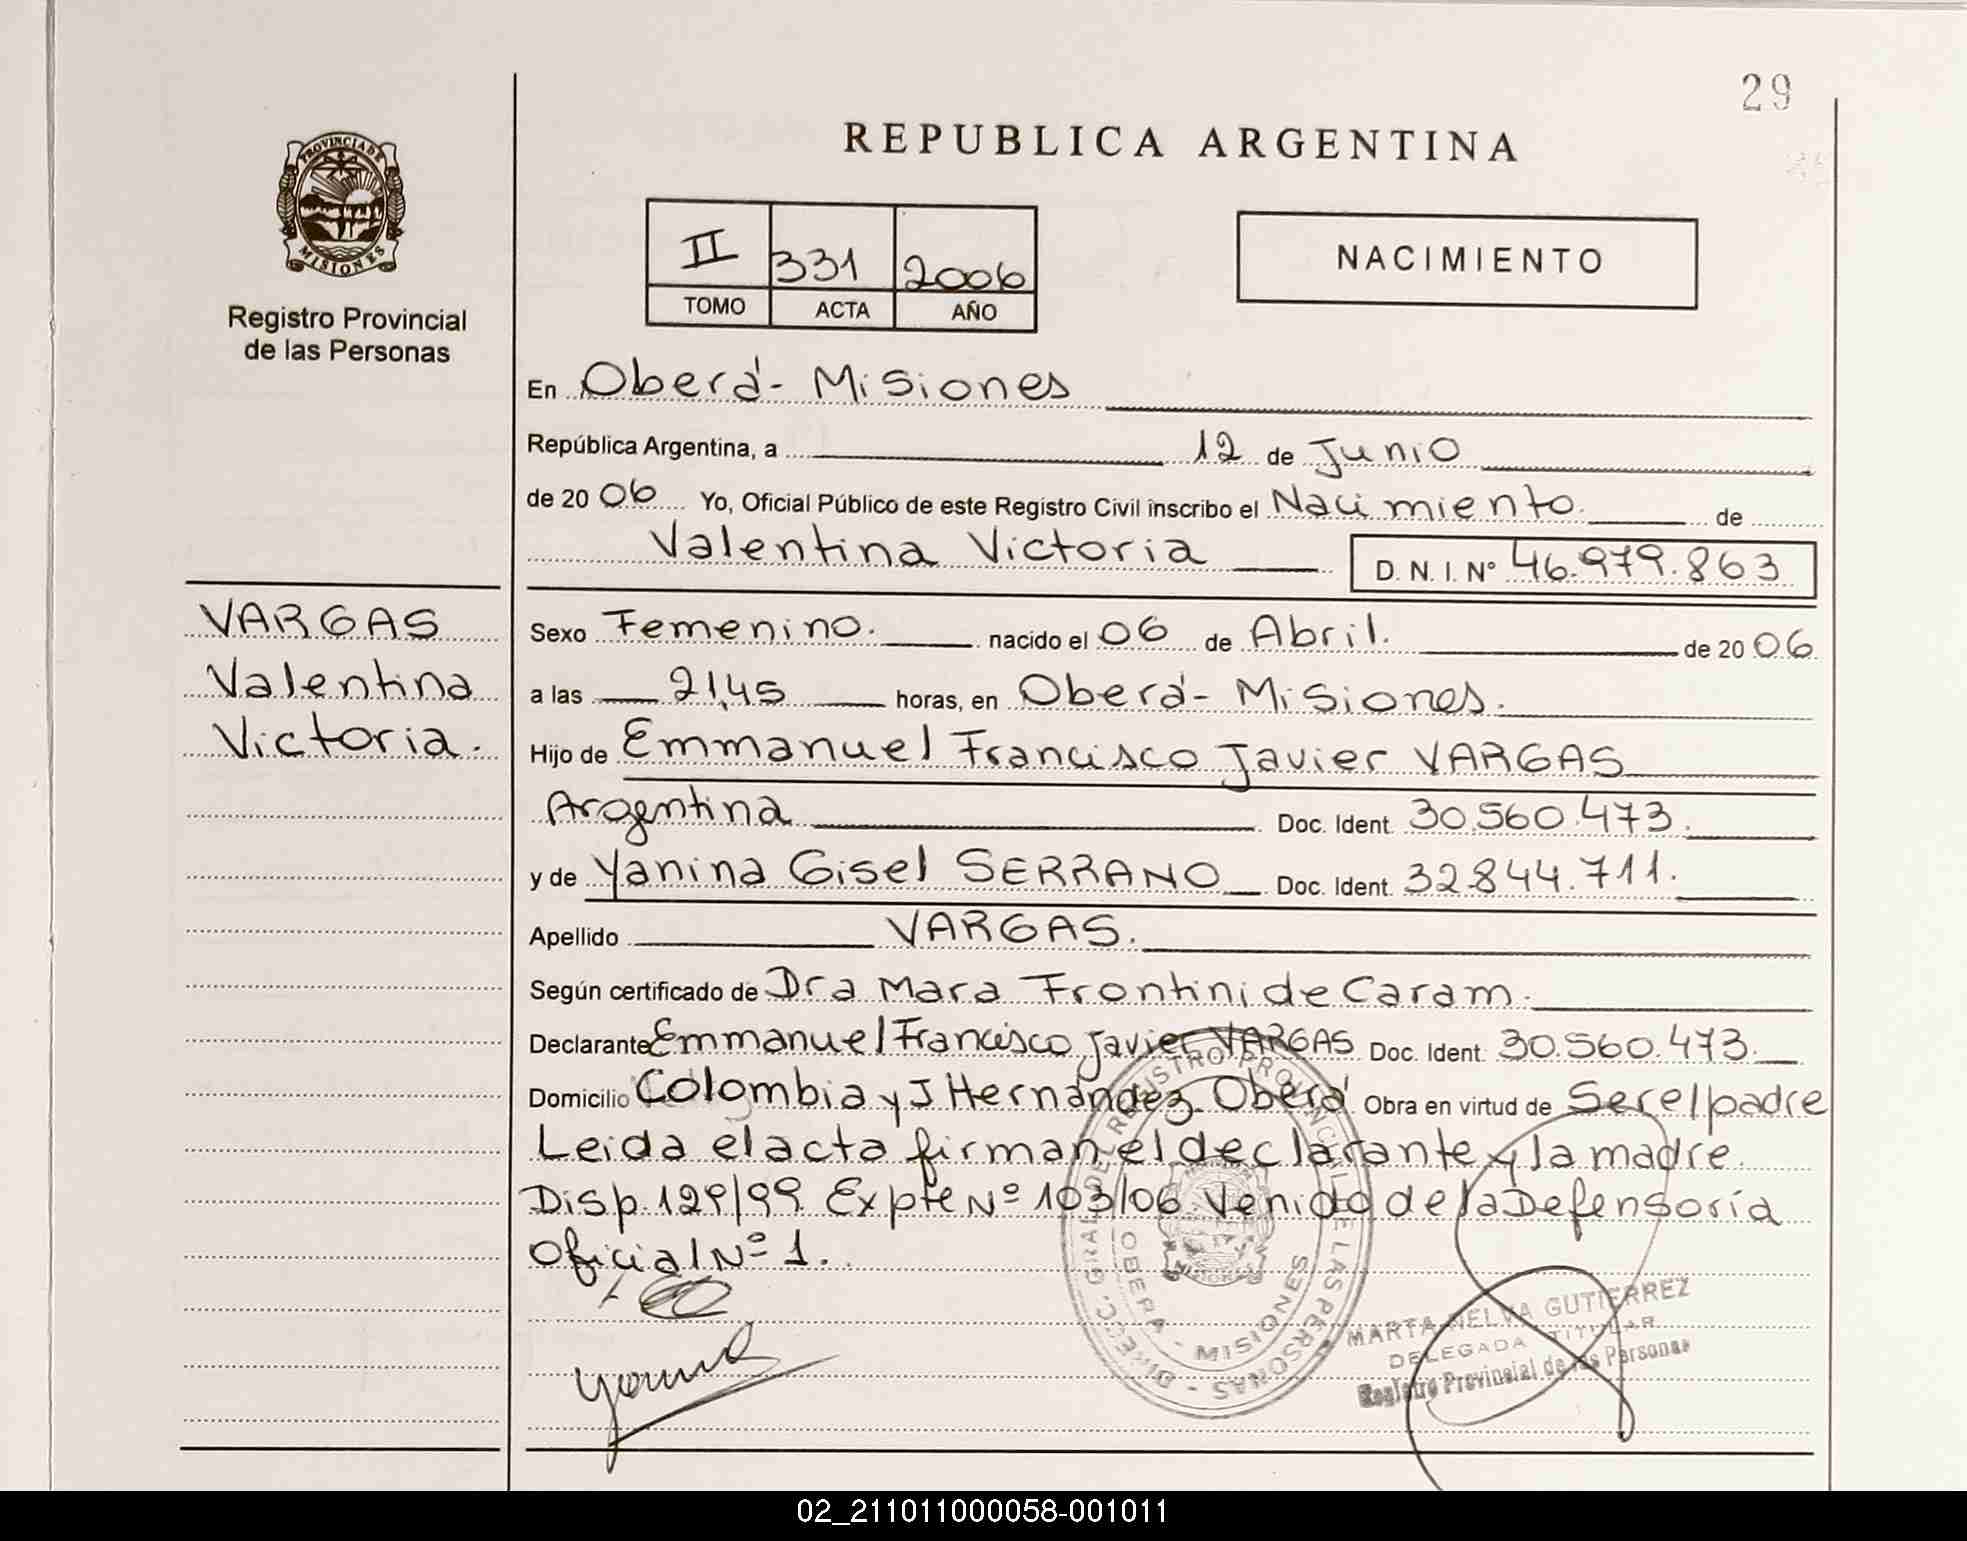 29
PROVINCIA DE
MISIONES
Registro Provincial
de las Personas
REPUBLICA ARGENTINA
II 331 2006
TOMO ACTA AÑO
NACIMIENTO
En Oberá - Misiones
República Argentina, a 12 de Junio
de 20 06 Yo, Oficial Público de este Registro Civil inscribo el Nacimiento. de
Valentina Victoria D. N. I. N° 46.979.863
VARGAS
Valentina
Victoria.
Sexo Femenino. nacido el 06 de Abril. de 20 06
a las 21,45 horas, en Oberá - Misiones.
Hijo de Emmanuel Francisco Javier VARGAS
Argentina Doc. Ident. 30.560.473.
y de Yanina Gisel SERRANO Doc. Ident. 32.844.711.
Apellido VARGAS.
Según certificado de Dra Mara Frontini de Caram.
Declarante Emmanuel Francisco Javier VARGAS Doc. Ident. 30.560.473.
Domicilio Colombia y J Hernández Oberá Obra en virtud de Ser el padre
Leida el acta firman el declarante y la madre.
Disp. 129/99. Expte Nº 103/06 Venido de la Defensoría
Oficial Nº 1.
DIRECC. GRAL. DEL REGISTRO PROVINCIAL DE LAS PERSONAS
OBERA - MISIONES
MARTA NELVA GUTIERREZ
DELEGADA TITULAR
Registro Provincial de las Personas
02_211011000058-001011